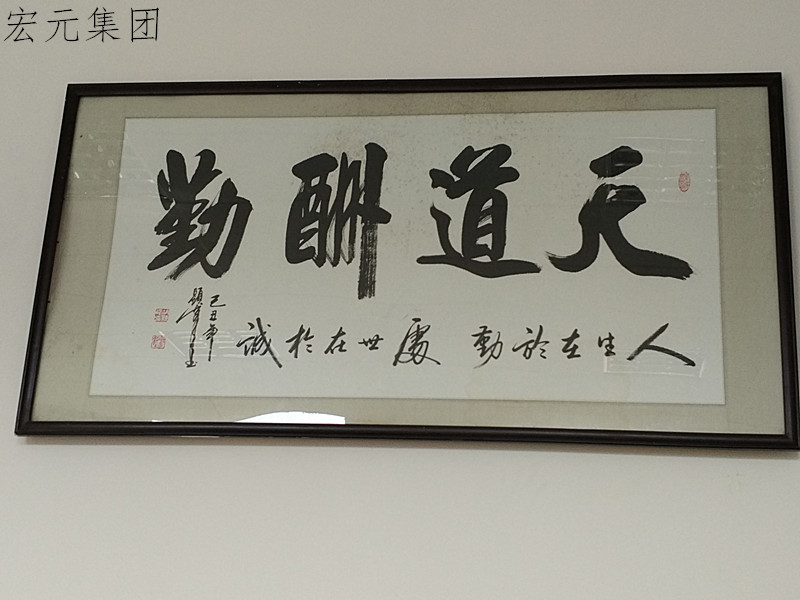 宏元集团
天道酬勤
人生在於勤 處世在於誠
己丑年